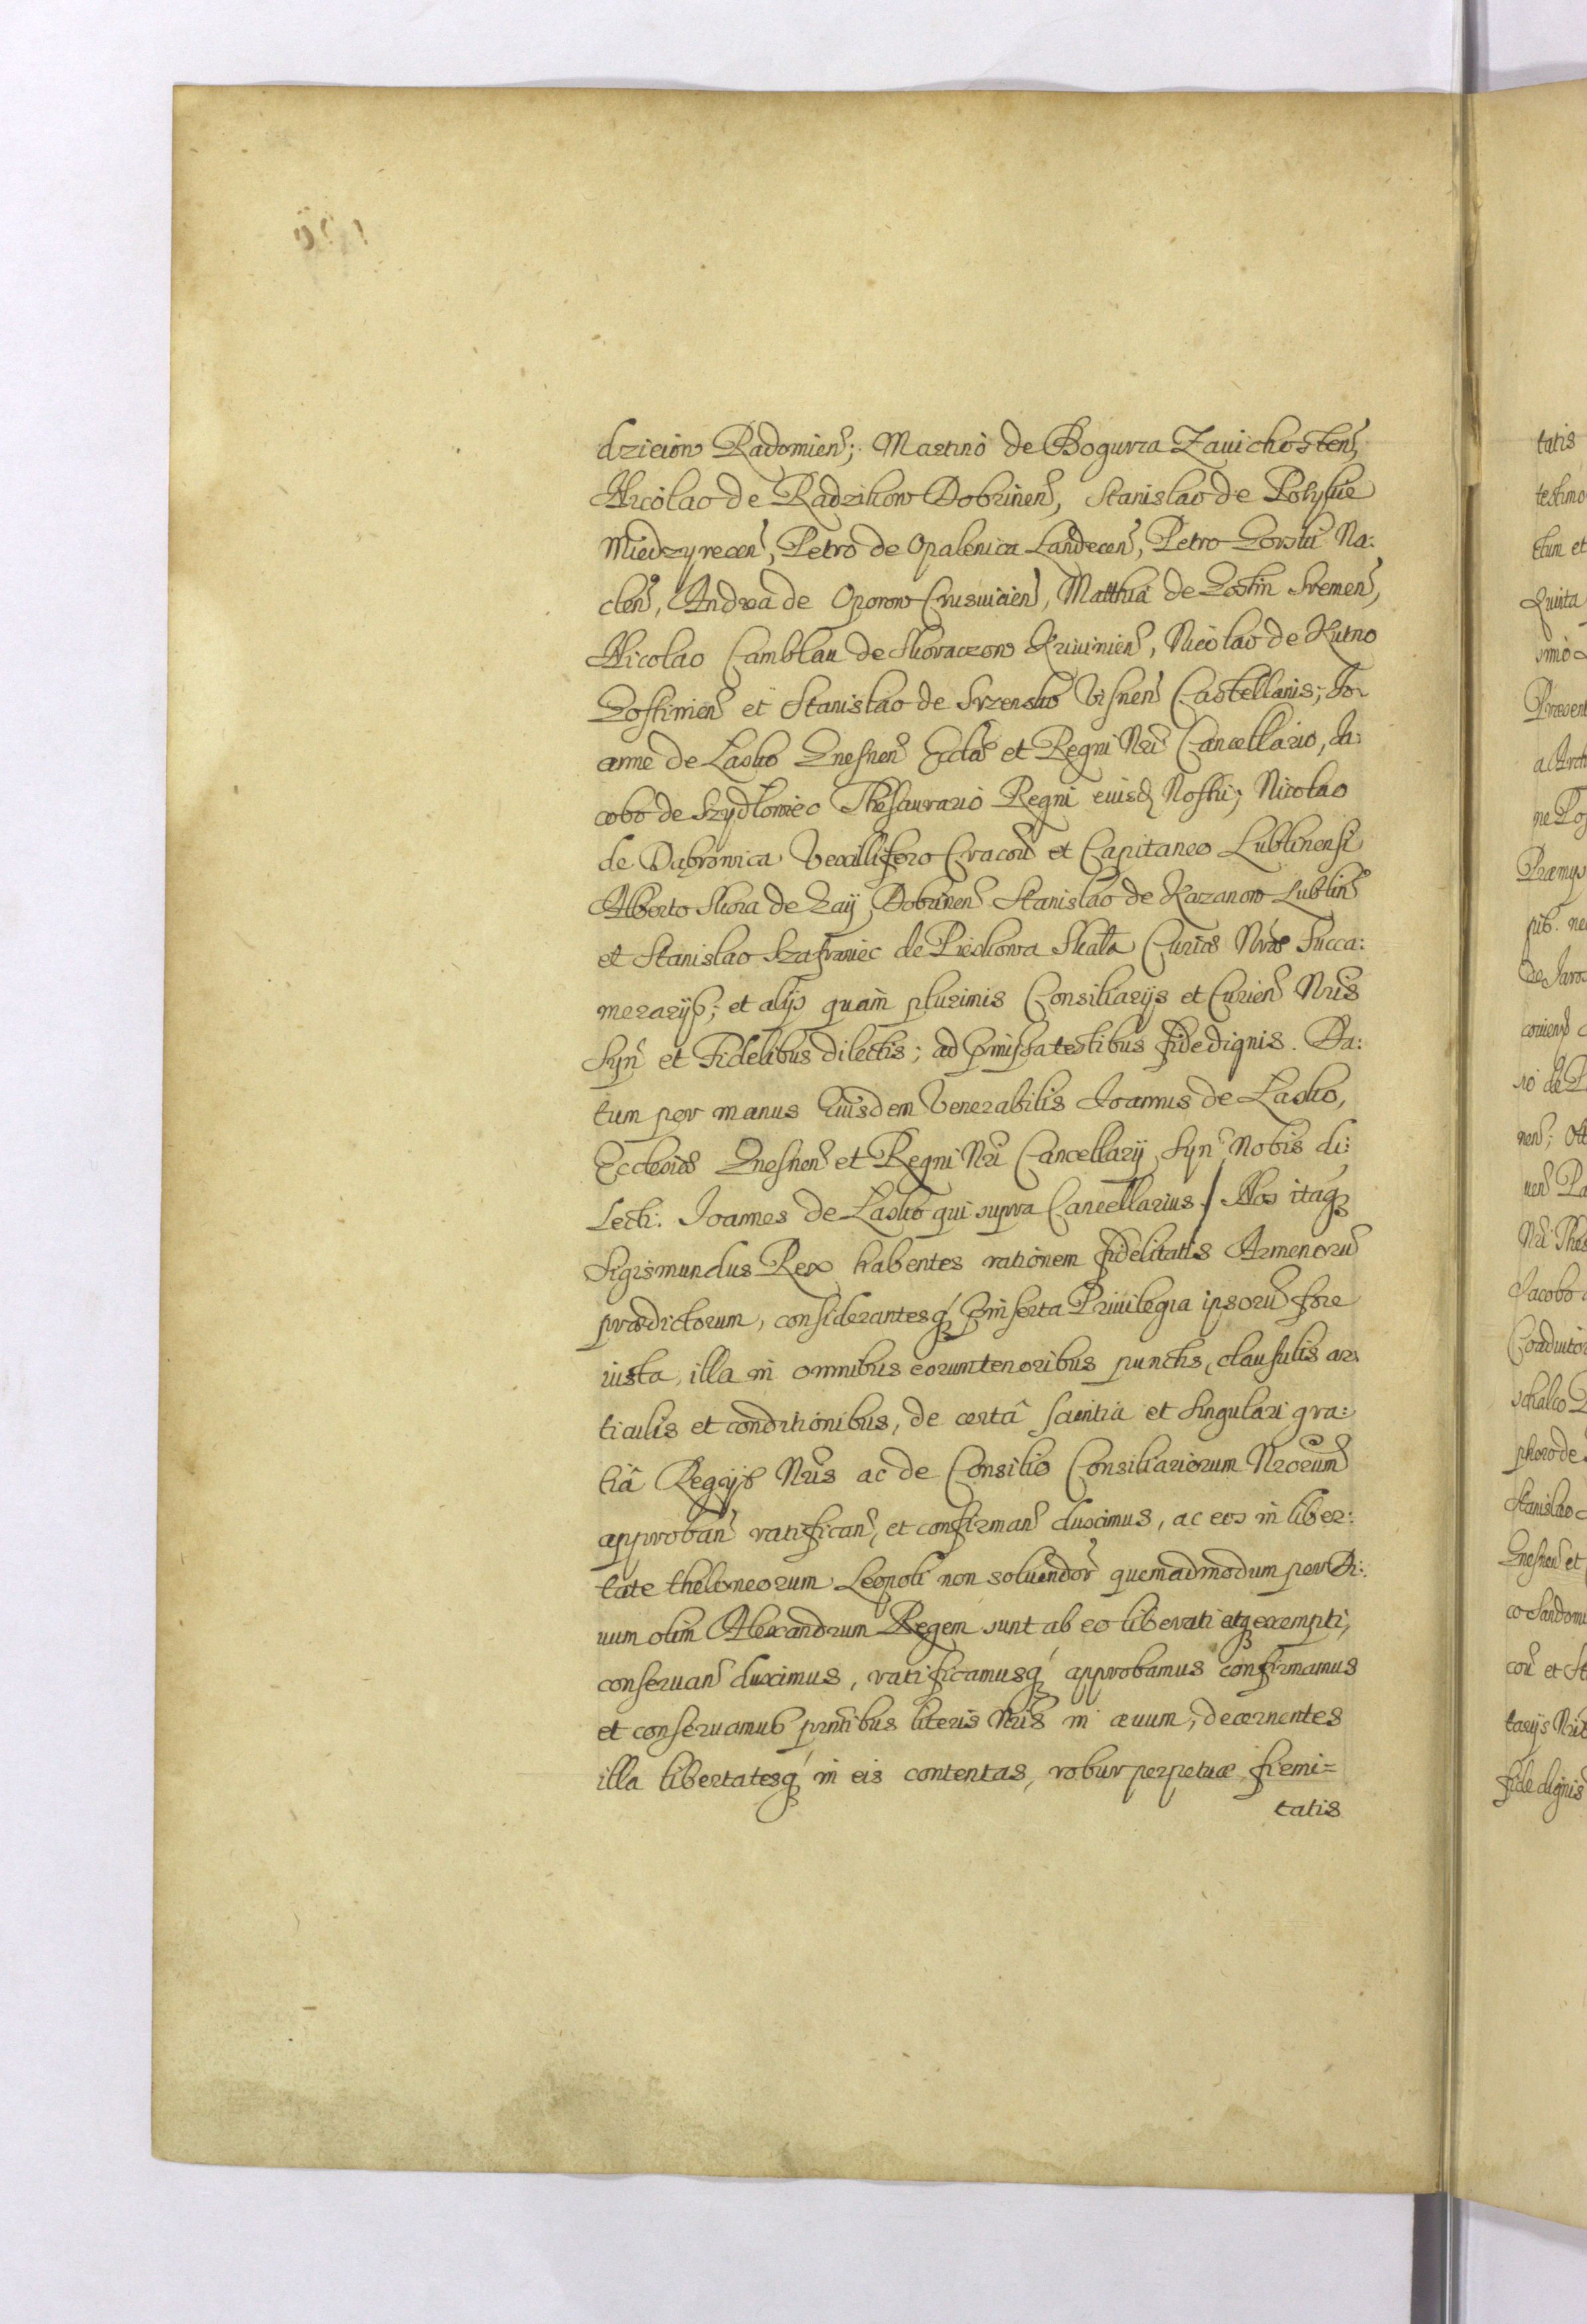 dzieiow Radomien̄; Martino de Bogurza Zauichosten̄,
Nicolao de Radzikow Dobrinen̄, Stanislao de Potylic
Miedzyrecen̄, Petro de Opalenica Landecen̄, Petro Gorski Na:
clen̄, Andrea de Oporow Crusuicien̄, Matthia de Gostin Sremen̄,
Nicolao Camblan de Skoraczow Kriuinien̄, Nicolao de Kutno
Gostinien̄ et Stanislao de Srzensko Visnen̄ Castellanis; Jo:
anne de Lasko Gnesnen̄ Eccłæ et Regni Nri Cancellario, Ja:
cobo de Szydłowiec Thesaurario Regni eiusd. Nostri; Nicolao
de Dąbrowica Vexillifero Cracou̅ et Capitaneo Lublinensi
Alberto Skora de Gaij Dobrinen̄ Stanislao de Kazanow Lublin̄
et Stanislao Szafraniec de Pieskowa Skała Curiæ Nræ Succa:
merarijs; et alijs quàm plurimis Consiliarijs et Curien̄ Nris
Syn̄ et Fidelibus dilectis; ad p̄missa testibus fidedignis. Da:
tum per manus Eiusdem Venerabilis Joannis de Lasko,
Ecclesiæ Gnesnen̄ et Regni Nri Cancellarij Syn̄ Nobis di:
lecti. Joannes de Lasko qui supra Cancellarius / Nos itaq₃
Sigismundus Rex habentes rationem fidelitatis Armenorū
prædictorum, considerantesq́₃ p̄inserta Priuilegia ipsorū fore
iusta, illa in omnibus eorum tenoribus punctis, clausulis ar:
ticulis et conditionibus, de certâ scientia et singulari gra:
tiâ Regijs Nris ac de Consilio Consiliariorum Nrorum
approban̄ ratifican̄, et confirman̄ duximus, ac eos in liber:
tate theloneorum Leopoli non soluendor̄ quemadmodum per Di:
uum olim Alexandrum Regem sunt ab eo liberati atq₃ exempti,
conseruan̄ duximus, ratificamusq́₃ approbamus confirmamus
et conseruamus prn̄tibus literis Nris in æuum, decernentes
illa libertatesq́₃ in eis contentas, robur perpetuæ firmi=
tatis
tatis
testimo
ctum et
Quinta
simo
Prouent
a Arch
ne Pos
Præmys
pib. ne
De Jaros
corien̄
no de
nen̄; Ott
nen̄ Pa
Nri Thes
Jacobo
Coadiutor
schalco
phoro de
Stanislao
Gnesnen̄ et
co Sandomi
cou̅ et St
tarijs Nris
fidedignis